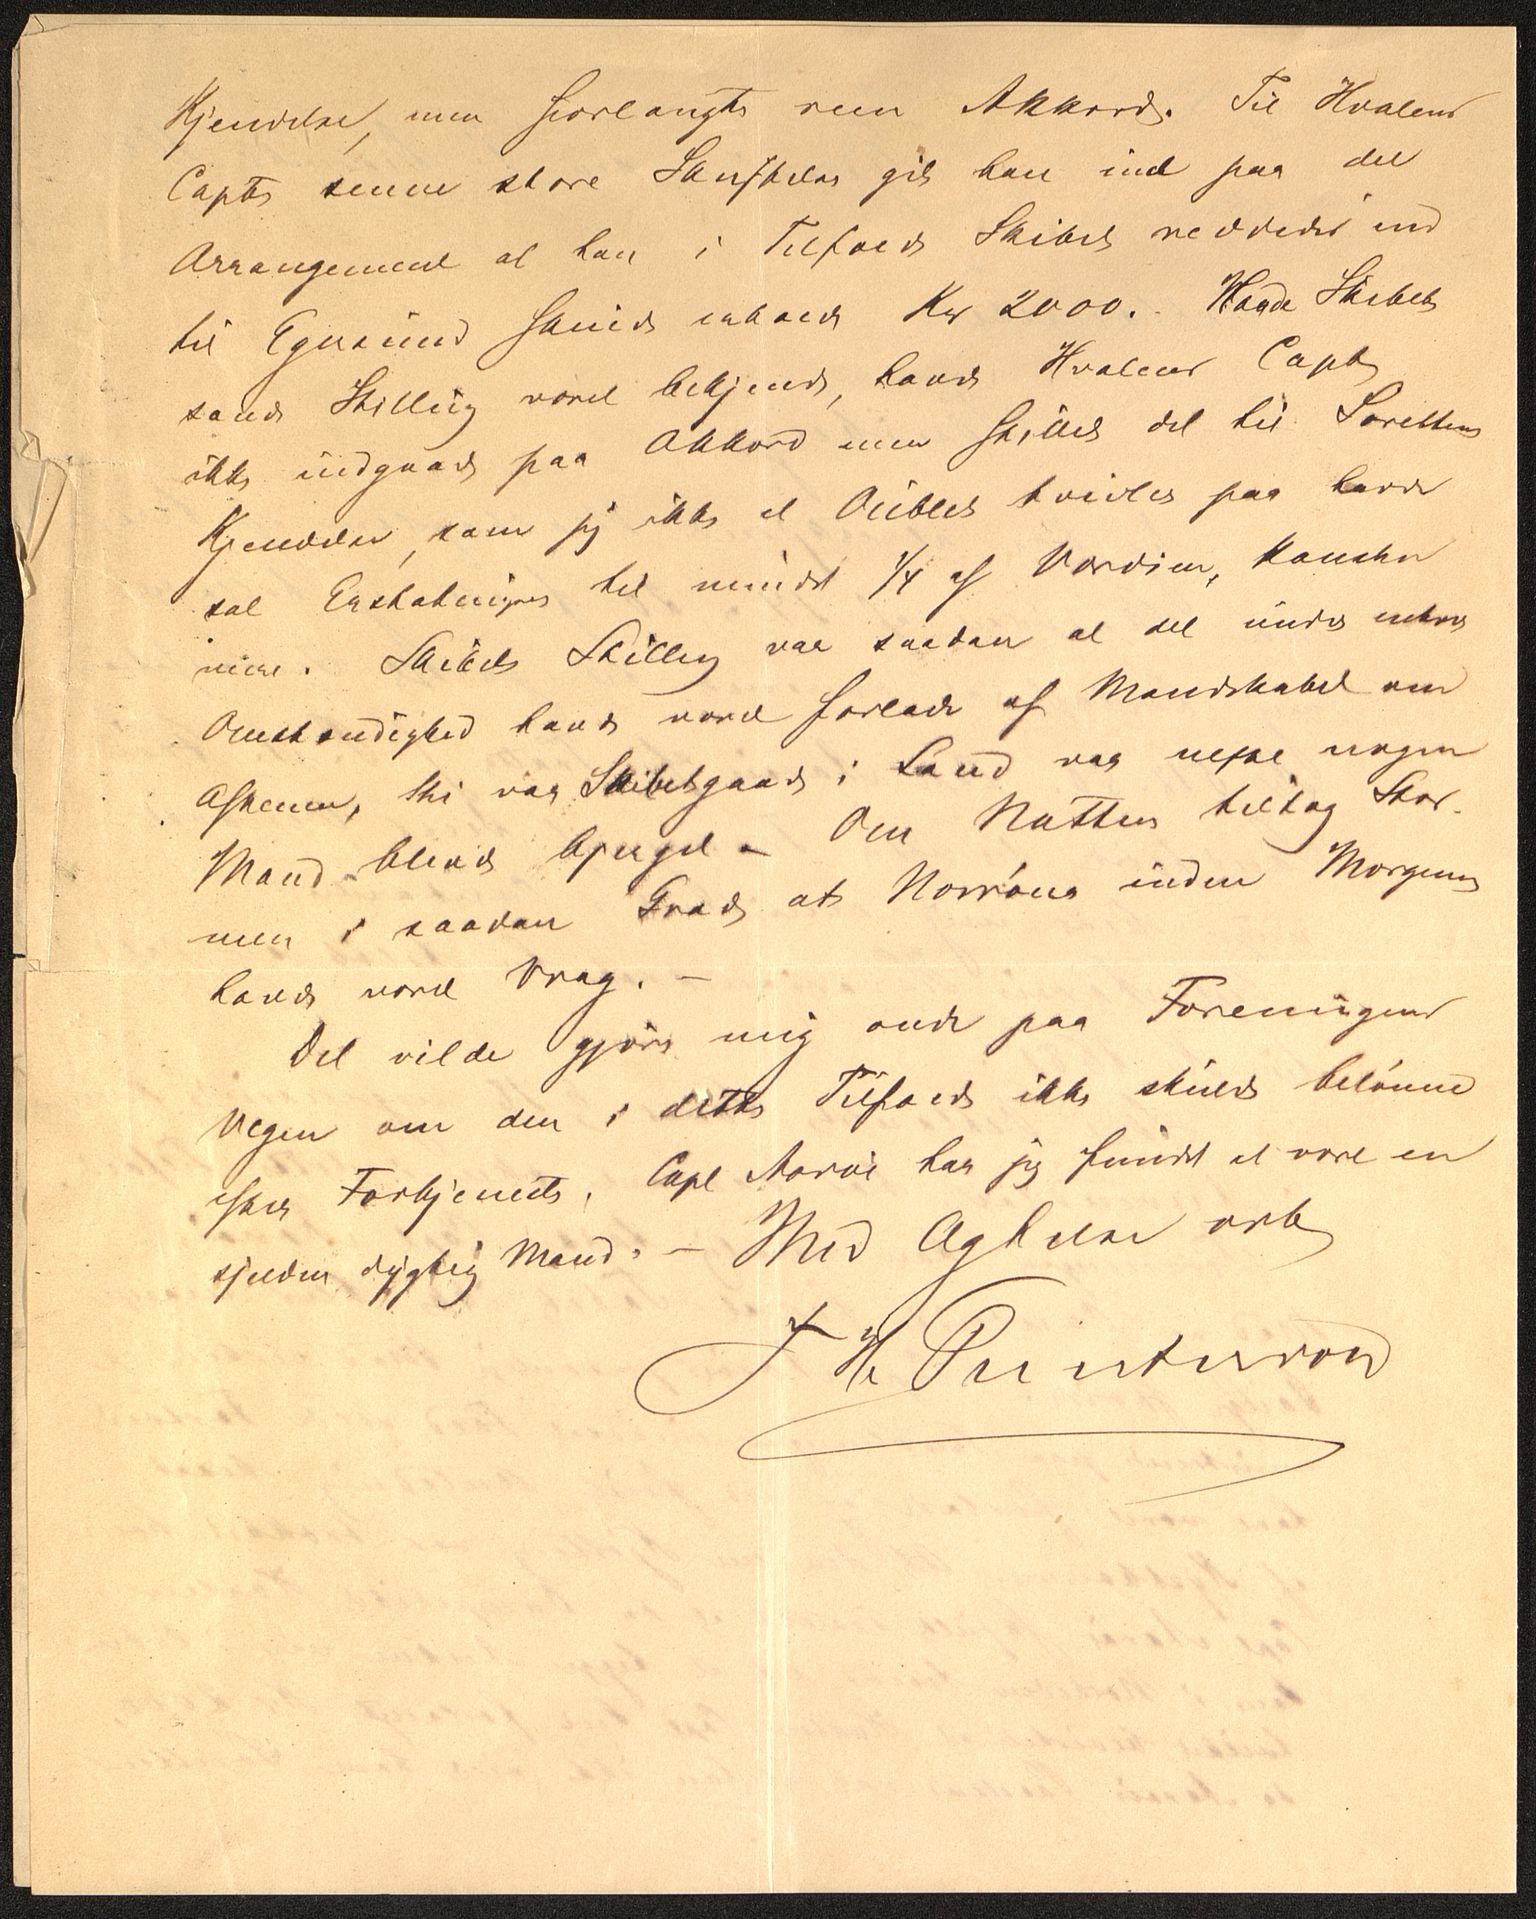 Kjendelse, men forlangte ren Akkord. Til Hvalens
Capts senere store Skuffelse gik han ind paa det
Arrangement at han i Tilfælde Skibet reddedes ind
til Egersund skulde erholde Kr 2000.- Havde Skibets
sande Stilling været bekjendt, havde Hvalens Capt
ikke indgaaet paa Akkord men stillet det til Sorettens
Kjendelse, som jeg ikke et Øieblik tviler paa havde
sat Erstatningen til mindst 1/4 af Værdien, kanske
mere. Skibets Stilling var saadan at det under enhver
Omstændighed havde været forladt af Mandskabet om
Aftenen, thi var Skibet gaaet i Land var neppe nogen
Mand blevet bjerget - Om Natten tiltog Stor-
men i saadan Grad at Norrøna inden Morgenen
havde været Vrag. -
Det vilde gjøre mig ondt paa Foreningens
Vegne om den i dette Tilfælde ikke skulde belønne
efter Fortjeneste. Capt har jeg fundet at være en
sjelden dygtig Mand. - Med Agtelse erb
J H